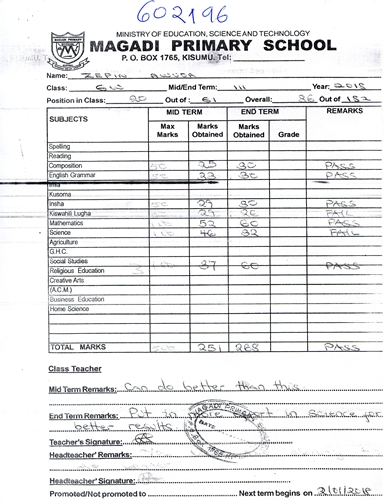 602196
MINISTRY OF EDUCATION, SCIENCE AND TECHNOLOGY
MAGADI PRIMARY SCHOOL
P. O. BOX 1765, KISUMU. Tel:
Name:
Class: 6W Mid/End Term: III Year: 2015
Position in Class: 20 Out of: 51 Overall: 36 Out of 152
SUBJECTS MID TERM END TERM REMARKS
Max Marks Marks Obtained Marks Obtained Grade
Spelling
Reading
Composition 50 25 30 PASS
English Grammar 23 30 PASS
Kusoma
Insha 50 29 30 PASS
Kiswahili Lugha 50 29 26 FAIL
Mathematics 52 60 PASS
Science 46 32 FAIL
Agriculture
G.H.C.
Social Studies
Religious Education 37 60 PASS
Creative Arts
(A.C.M.)
Business Education
Home Science
TOTAL MARKS 251 268 PASS
Class Teacher
Mid Term Remarks: Can do better than this
End Term Remarks: Put in more effort in Science for
better results
MAGADI PRIMARY SCHOOL
DATE
Teacher's Signature:
Headteacher' Remarks:
Headteacher' Signature:
Promoted/Not promoted to Next term begins on